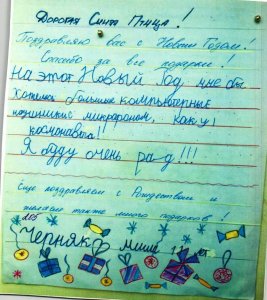 Дорогая Синяя Птица!
Поздравляю вас с Новым Годом!
Спасибо за все подарки!
На этот Новый Год мне бы
хотелось большие компьютерные
наушники с микрофоном, как у
космонавта!!
Я буду очень ра-д!!!
Еще поздравляем с Рождеством и
желаем также много подарков!
Черняк Миша 11 лет